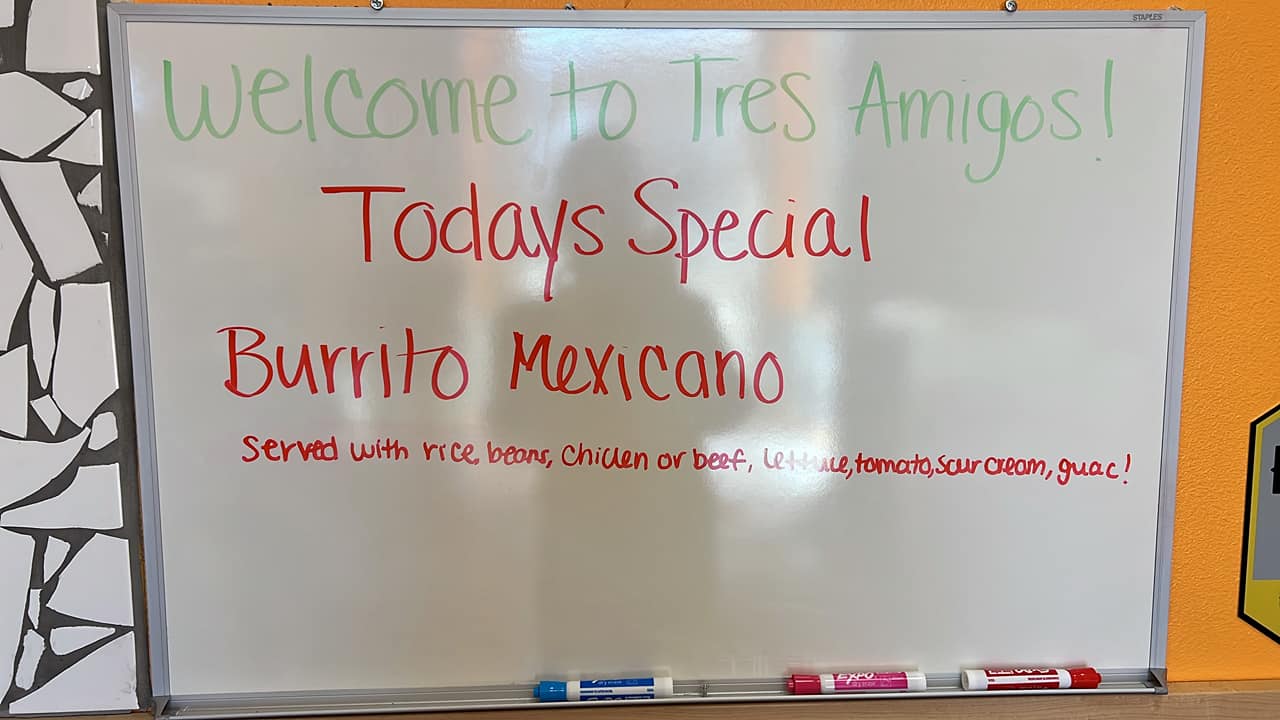 STAPLES
Welcome to Tres Amigos!
Todays Special
Burrito Mexicano
Served with rice, beans, chicken or beef, lettuce, tomato, sour cream, guac!
EXPO